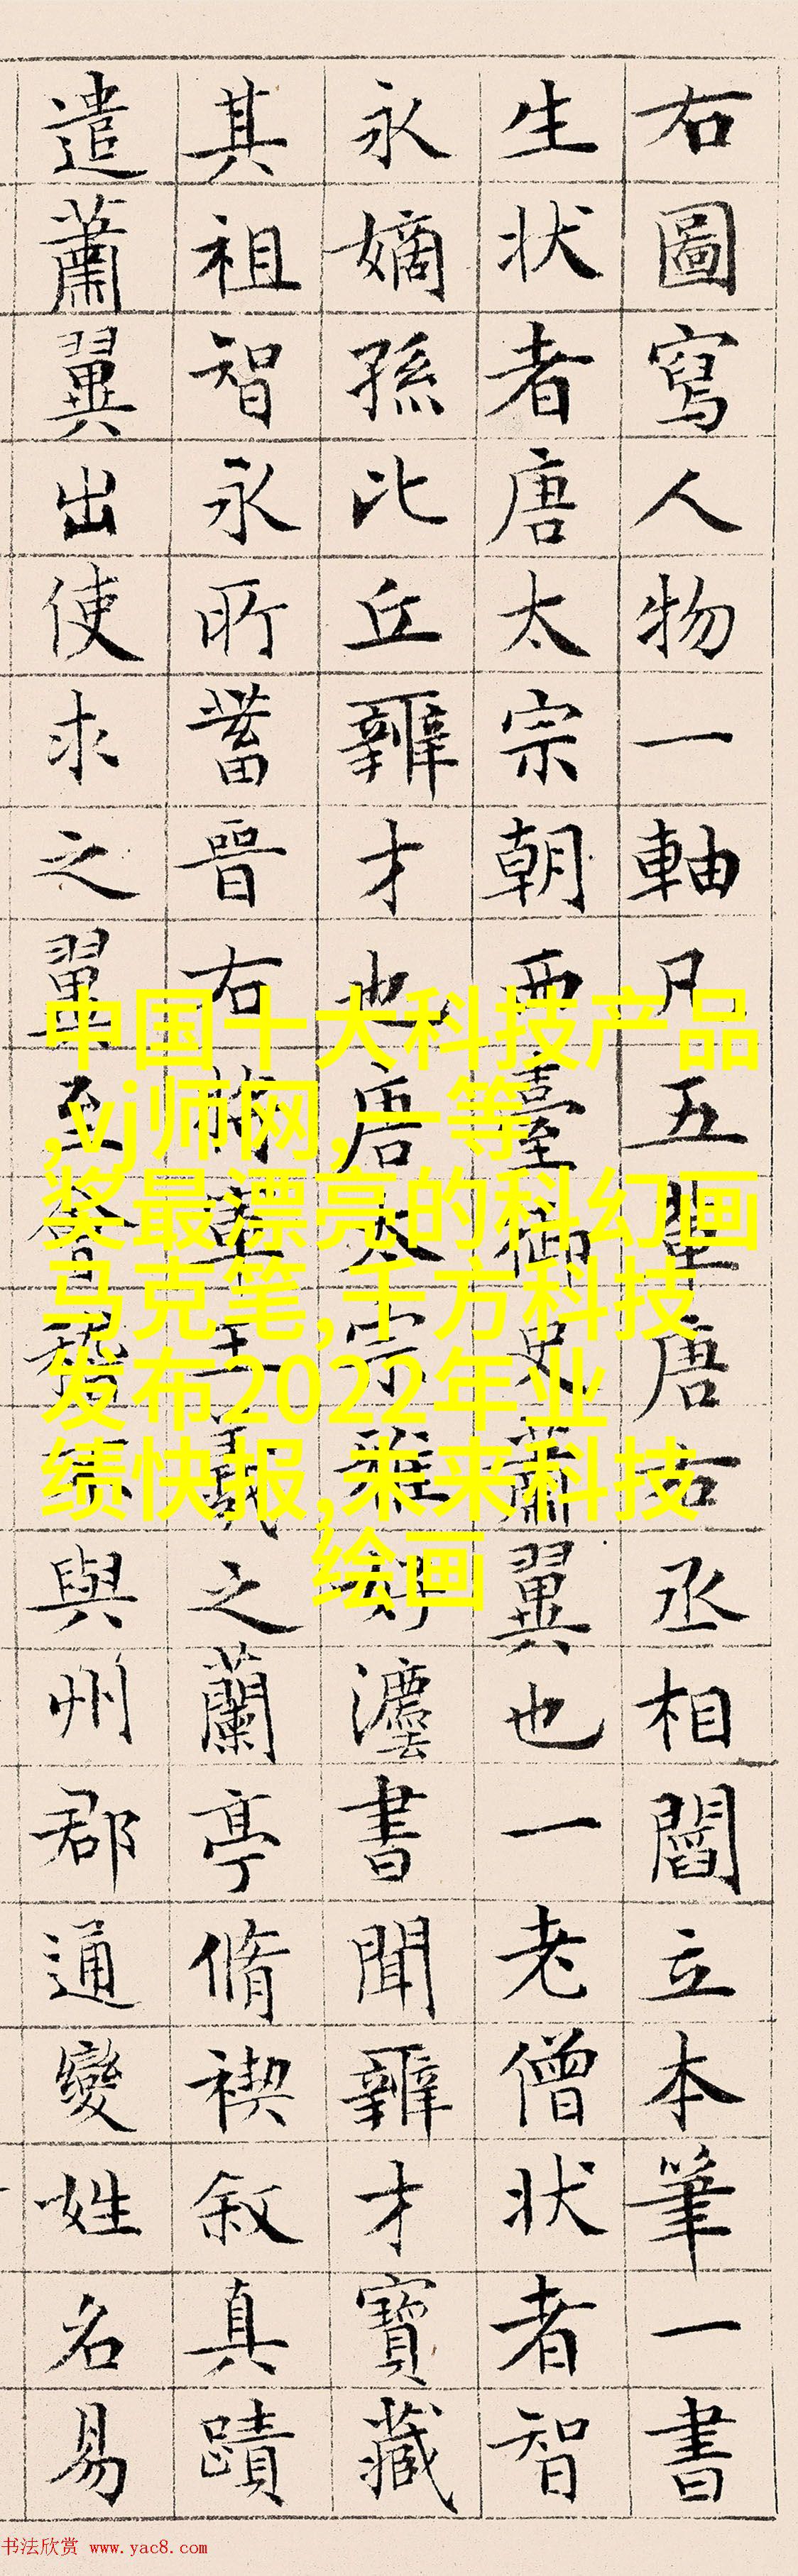 右圖寫人物一軸凡五輩唐右丞相閻立本筆一書
生状者唐太宗朝西臺御史蕭翼也一老僧状者智
永嫡孫比丘辨才也唐太宗雅好灋書聞辨才寶藏
其祖智永所蓄晉右將軍王羲之蘭亭脩禊敘真蹟
遣蕭翼出使求之翼至會稽不與州郡通變姓名易
中国十大科技产品
,vj师网,一等
奖最漂亮的科幻画
马克笔,千方科技
发布2022年业
绩快报,未来科技
绘画
书法欣赏 www.yac8.com